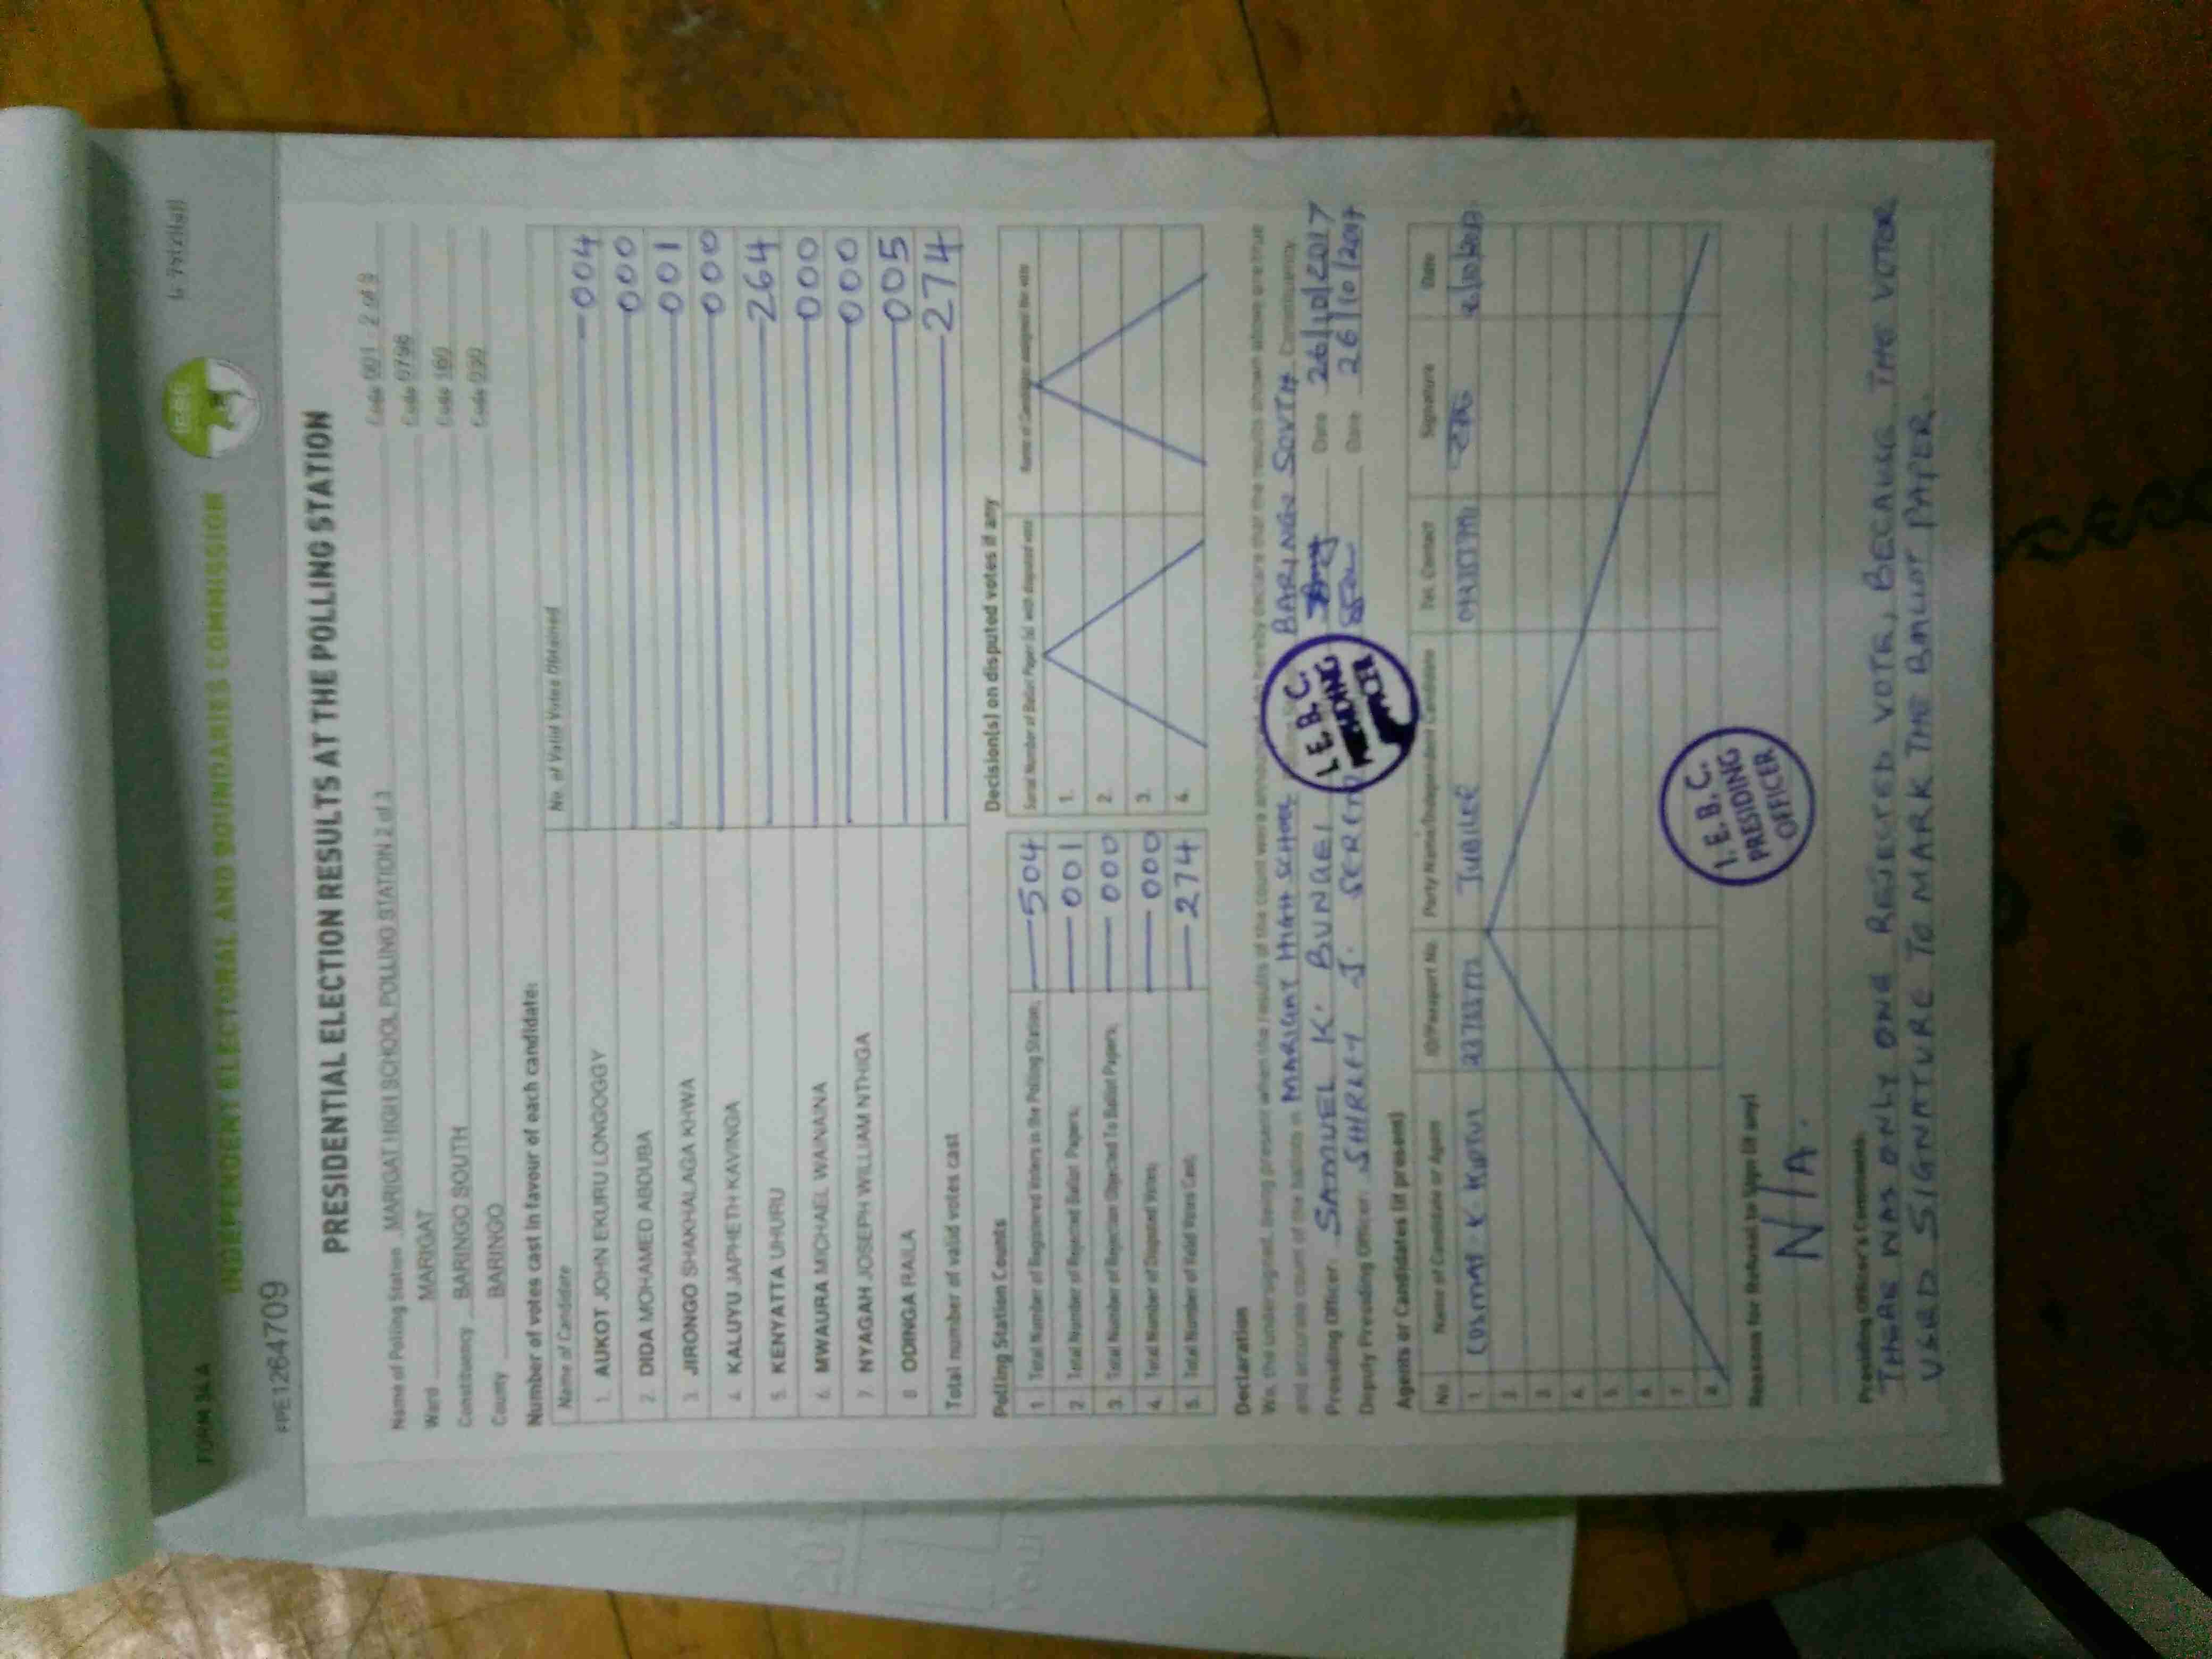 FORM 34A
INDEPENDENT ELECTORAL AND BOUNDARIES COMMISSION
FPE1264709
PRESIDENTIAL ELECTION RESULTS AT THE POLLING STATION
Name of Polling Station MARIGAT HIGH SCHOOL POLLING STATION 2 of 3 Code 001 2 of 3
Ward MARIGAT Code 0796
Constituency BARINGO SOUTH Code 160
County BARINGO Code 030
Number of votes cast in favour of each candidate:
Name of Candidate No. of Valid Votes Obtained
1. AUKOT JOHN EKURU LONGOGGY 004
2. DIDA MOHAMED ABDUBA 000
3. JIRONGO SHAKHALAGA KHWA 001
4. KALUYU JAPHETH KAVINGA 000
5. KENYATTA UHURU 264
6. MWAURA MICHAEL WAINAINA 000
7. NYAGAH JOSEPH WILLIAM NTHIGA 000
8 ODINGA RAILA 005
Total number of valid votes cast 274
Polling Station Counts
1. Total Number of Registered Voters in the Polling Station; 504
2. Total Number of Rejected Ballot Papers; 001
3. Total Number of Rejection Objected To Ballot Papers; 000
4. Total Number of Disputed Votes; 000
5. Total Number of Valid Votes Cast; 274
Decision(s) on disputed votes if any
Serial Number of Ballot Paper (s) with disputed vote Name of Candidate assigned the vote
1.
2.
3.
4.
Declaration
We, the undersigned, being present when the results of the count were announced, do hereby declare that the results shown above are true
and accurate count of the ballots in MARIGAT HIGH SCHOOL BARINGO SOUTH Constituency
Presiding Officer: SAMUEL K. BUNGEI Date 26/10/2017
Deputy Presiding Officer: SHIRLEY J. Date 26/10/2017
I.E.B.C.
PRESIDING
OFFICER
Agents or Candidates (if present)
No. Name of Candidate or Agent ID/Passport No. Party Name/Independent Candidate Tel. Contact Signature Date
1. K JUBILEE
2
3.
4.
5.
6
7.
8.
I.E.B.C.
PRESIDING
OFFICER
Reasons for Refusal to Sign (if any)
N/A.
Presiding Officer's Comments:
THERE WAS ONLY ONE REJECTED VOTE, BECAUSE THE VOTER
USED SIGNATURE TO MARK THE BALLOT PAPER.